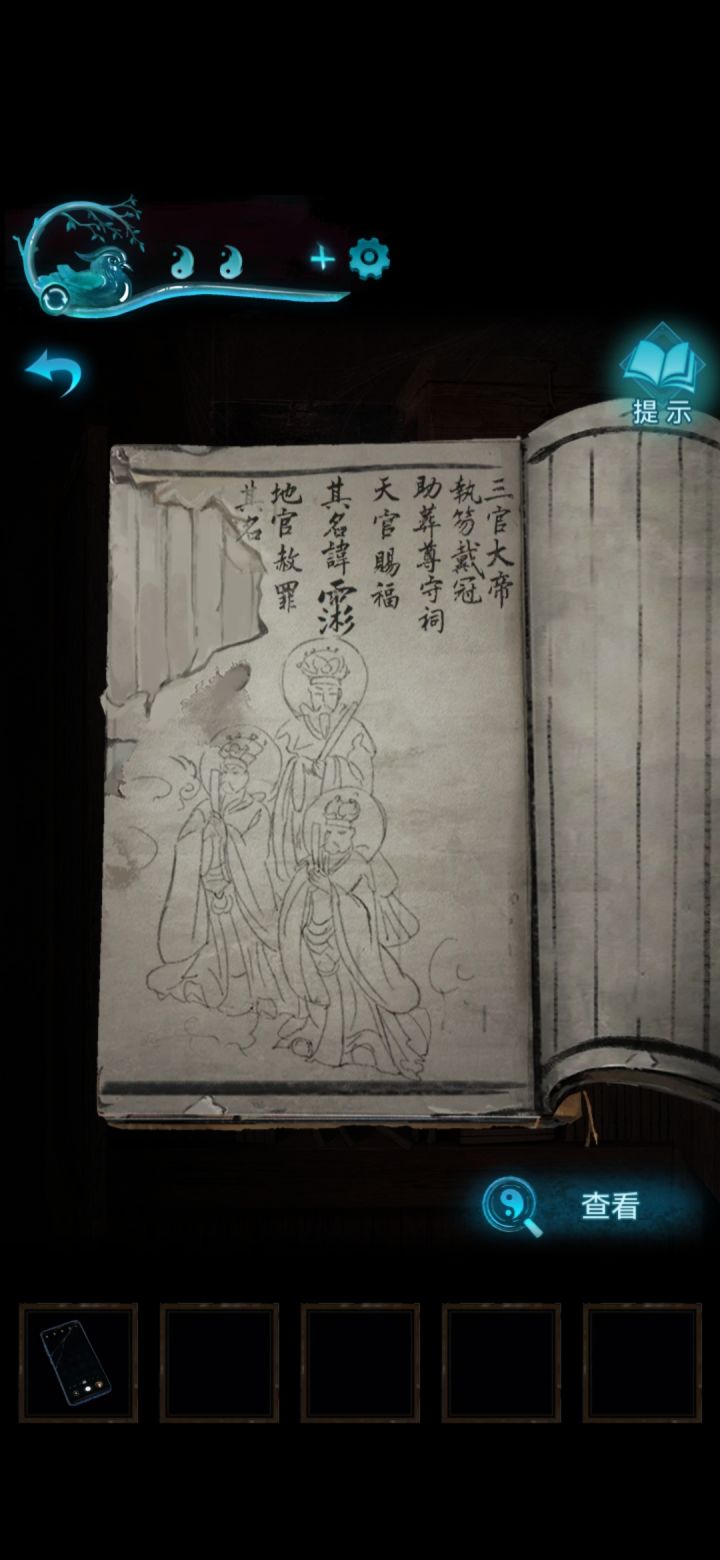 提示
三官大帝
執笏戴冠
助葬尊守祠
天官賜福
其名諱
地官赦罪
其名
查看